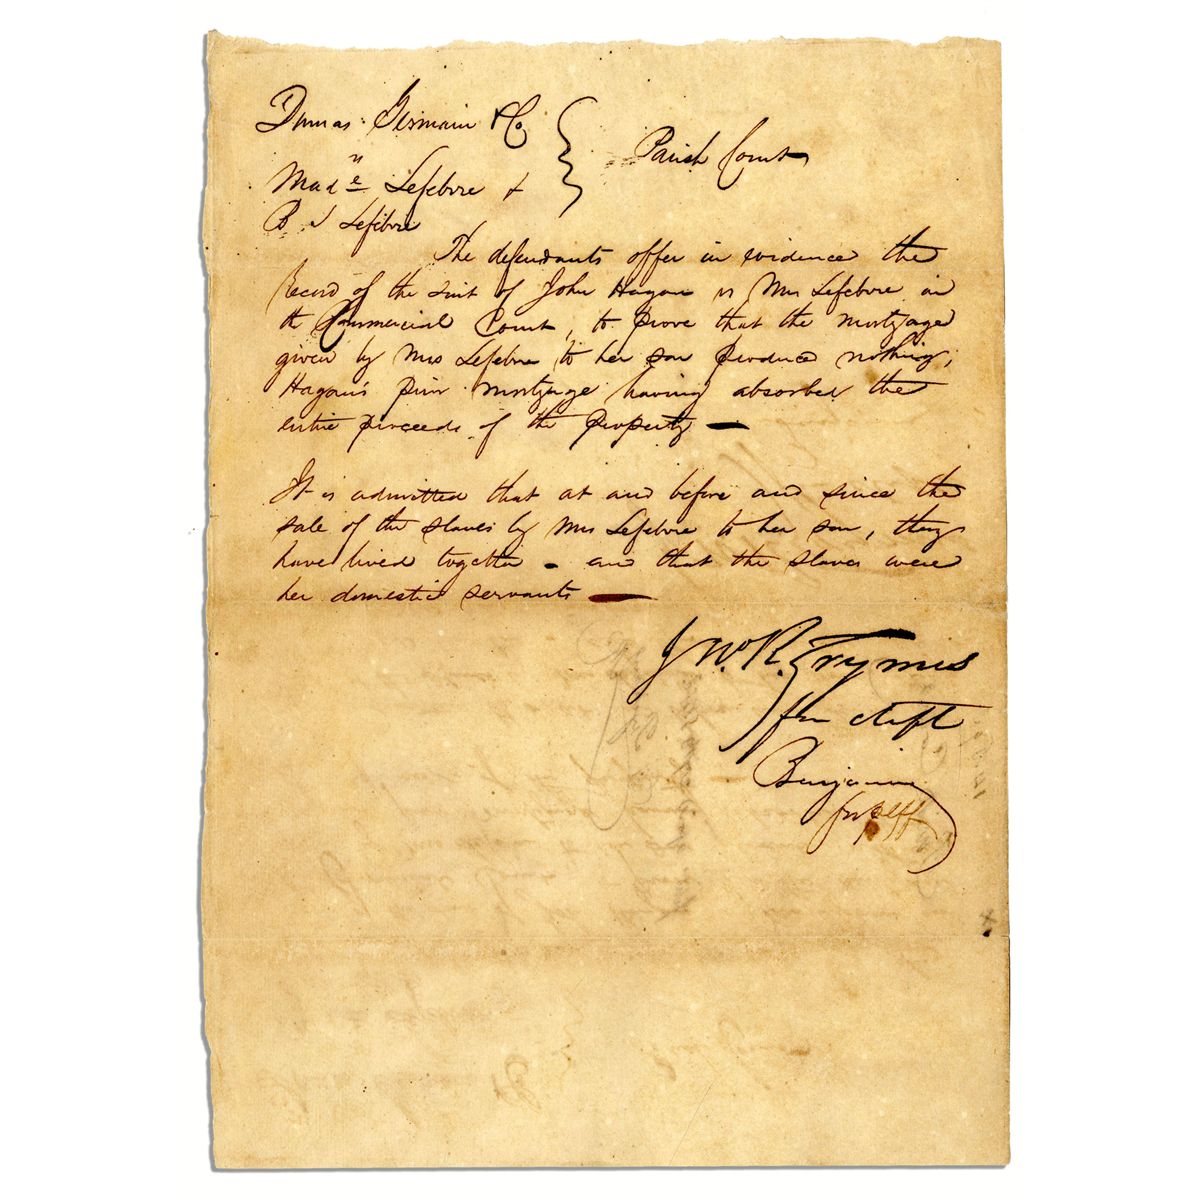 Dumas Germain & Co
vs
Made Lefebvre &
B J Lefebvre
Parish Court
The defendants offer in evidence the
record of the suit of John Hagan vs Mrs Lefebvre in
the Commercial Court, to prove that the mortgage
given by Mrs Lefebvre to her son produce nothing;
Hagan's prior mortgage having absorbed the
entire proceeds of the property —
It is admitted that at and before and since the
sale of the slaves by Mrs Lefebvre to her son, they
have lived together - and that the slaves were
her domestic servants —
J W. R. Grymes
for deft
Benjamin
for plff